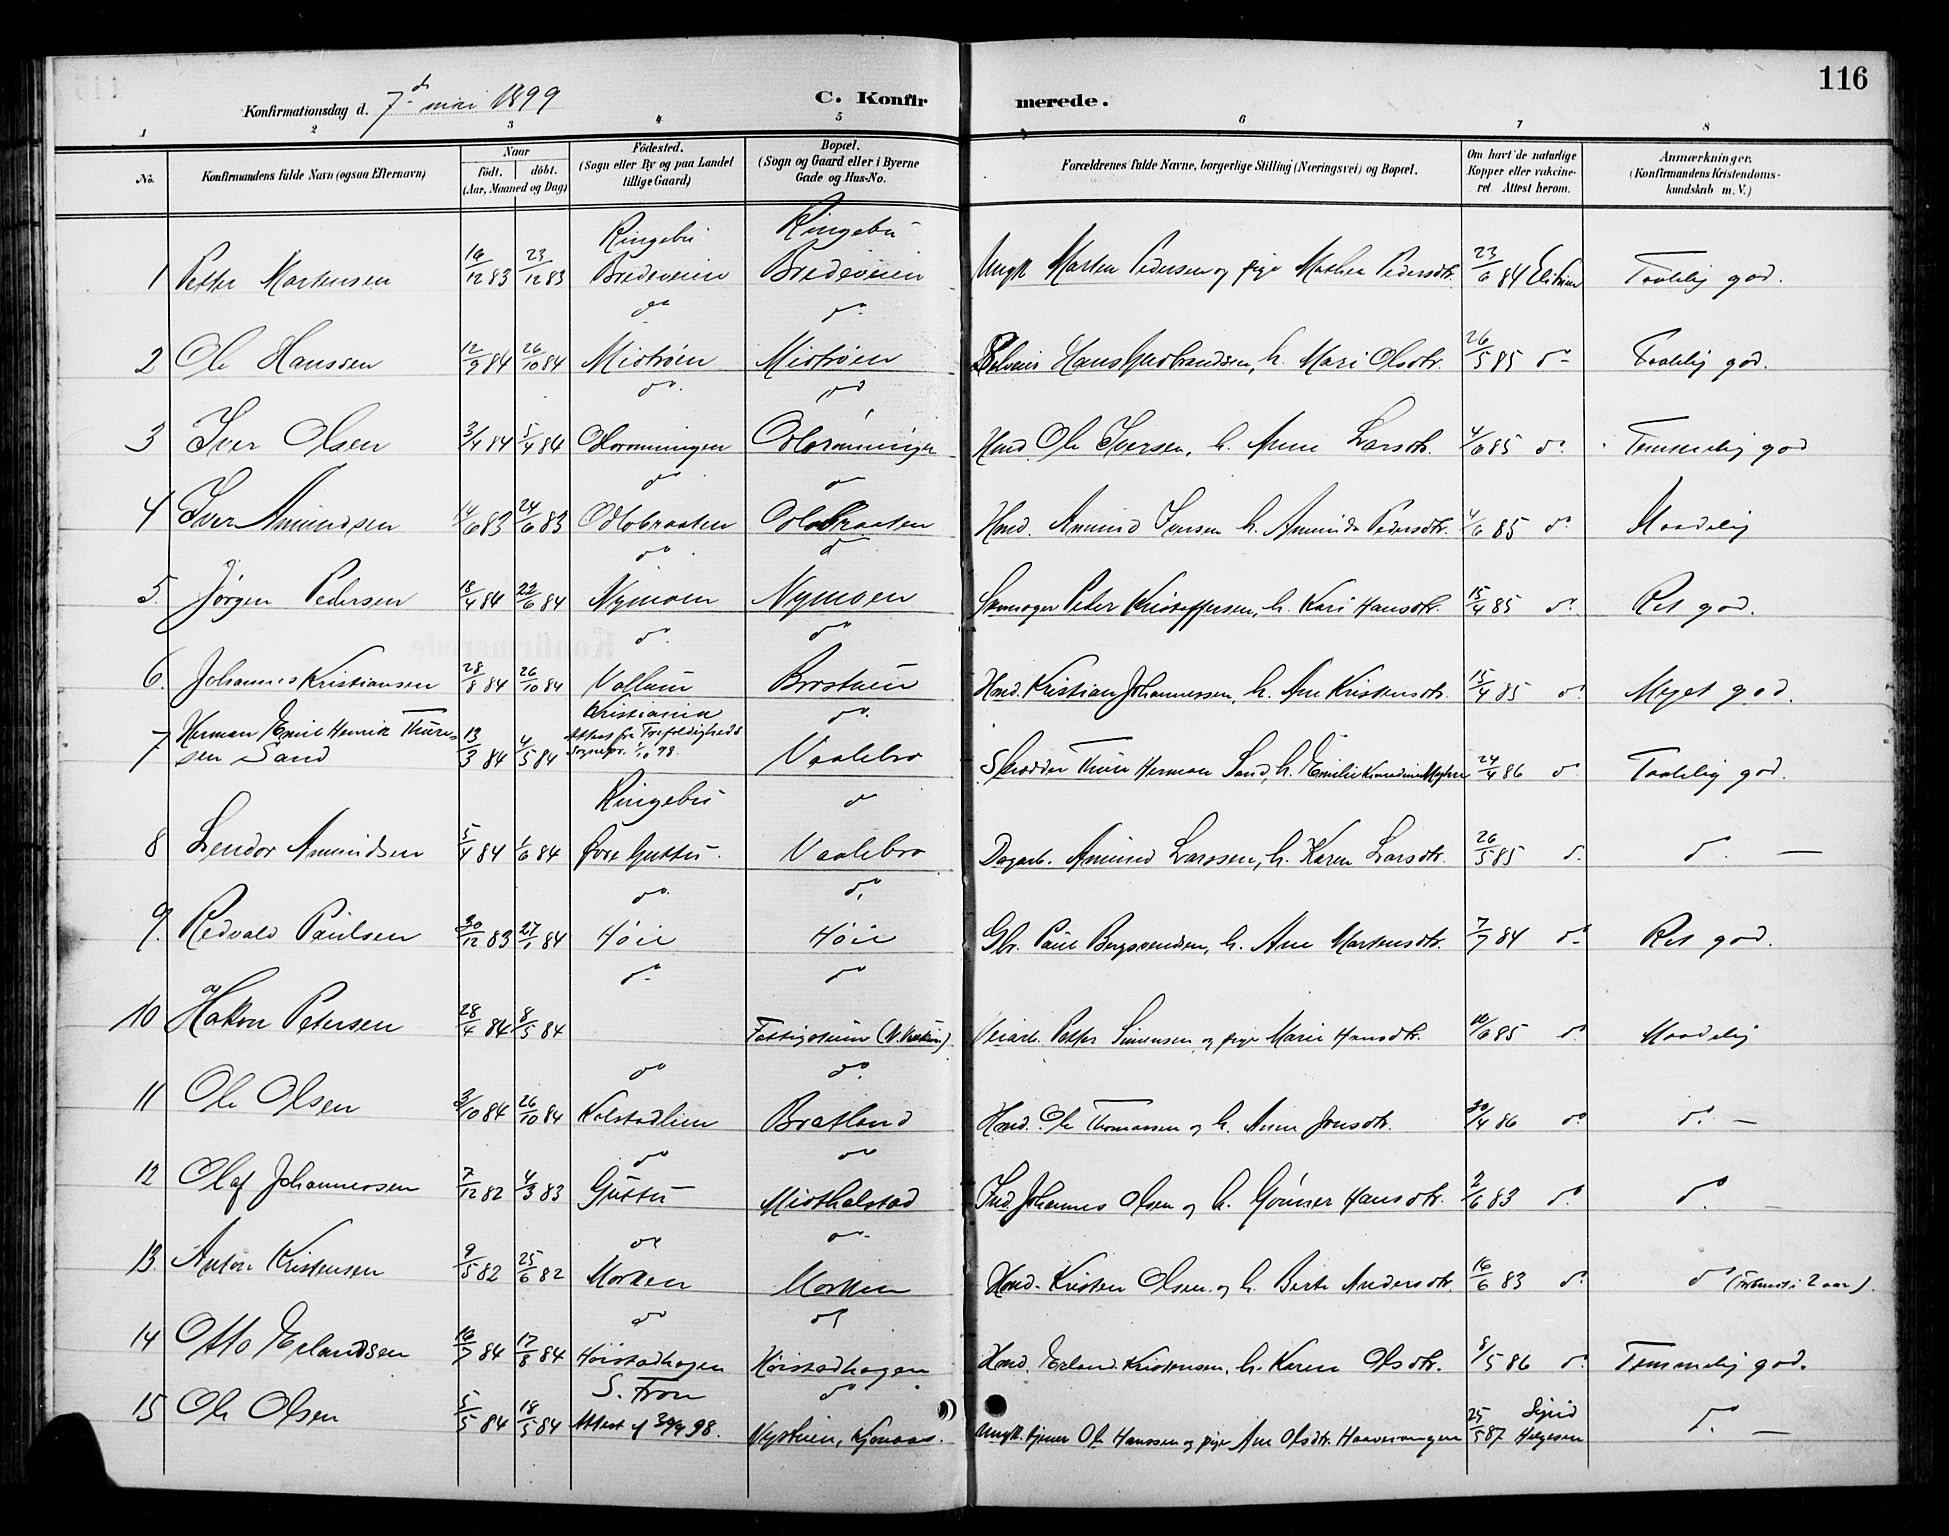 116
Konfirmationsdag d. 7de mai 1899
C. Konfirmerede.
1 2 3 4 5 6 7 8
No.
Konfirmandens fulde Navn (ogsaa Efternavn)
Naar
födt. döbt.
(Aar, Maaned og Dag)
Födested.
(Sogn eller By og paa Landet
tillige Gaard)
Bopæl.
(Sogn og Gaard eller i Byerne
Gade og Hus-No.
Forældrenes fulde Navne, borgerlige Stilling (Næringsvei) og Bopæl.
Om havt de naturlige
Kopper eller vakcine-
ret. Attest herom.
Anmærkninger.
(Konfirmandens Kristendoms-
kundskab m. V.)
Ringebu Ringebu
1 Petter Martensen 16/12 83 23/12 83 Bredeveien Bredeveien Ungk Marten Pedersen og pige Mathea Pedersdtr. 23/6 84 Taalelig god.
do do
2 Ole Hanssen 12/9 84 26/10 84 Midtrøen Midtrøen Hans Gudbrandsen, h. Mari Olsdtr. 26/5 85 do Taalelig god.
do do
3 Iver Olsen 3/4 84 5/4 84 Hmd. Ole Iversen, h. Anne Larsdtr. 4/6 85 do Temmelig god
do do
4 Iver Amundsen 14/6 83 24/6 83 Odlobraaten Odlobraaten Hmd. Amund Iversen h. Amunda Pedersdtr. 4/6 85 do Maadelig
do do
5. Jørgen Pedersen 18/4 84 22/6 84 Nymoen Nymoen Peder Kristoffersen, h. Kari Hansdtr. 15/4 85 do Ret god.
do do
6. Johannes Kristiansen 28/8 84 26/10 84 Vollum Brostuen Hmd. Kristian Johannessen, h. Ane Kristensdtr. 15/4 85 do Meget god.
Kristiania do
7 Herman Emil Henrik Thure-
sen Sand 13/3 84 4/5 84 Attest fra Trefoldigheds
Sognepr. 1/10 98. Vaalebro Skrædder Thure Herman Sand, h. Emilie 24/4 86 do Taalelig god.
Ringebu do
8 Lendor Amundsen 5/4 84 1/6 84 Øvre Guttu Vaalebro Dagarb. Amund Larssen, h. Karen Larsdtr. 26/5 85 do do —
do do
9. Redvald Paulsen 30/12 83 27/1 84 Høie Høie Gbr. Paul Bergsvendsen, h. Ane Martensdtr. 7/7 84 do Ret god.
do do
10 Hakon Petersen 28/4 84 8/5 84 Fattigstuen Veiarb. Petter Simensen og pige Marie Hansdtr. 10/6 85 do Maadelig
do do
11 Ole Olsen 3/10 84 26/10 84 Kolstadlien Bratland Hmd. Ole Thomassen og h. Anne Jonsdtr. 30/4 86 do do —
do do
12 Olaf Johannessen 7/12 82 4/3 83 Guttu Midthalstad Ind. Johannes Olsen og h. Gunner Hansdtr. 2/6 83 do do
do do
13. Anton Kristensen 9/5 82 25/6 82 Morken Morken Hmd. Kristen Olsen og h. Berte Andersdtr. 16/6 83 do do (Forberedt i 2 aar).
do do
14 Otto Erlandsen 16/7 84 17/8 84 Høistadhagen Høistadhagen Hmd. Erland Kristensen, h. Karen Olsdtr. 8/5 86 do Temmelig god.
S. Fron do
15 Ole Olsen 5/5 84 18/5 84 Attest af 30/9 98. Nystuen, Ungk. tjener Ole Hanssen og pige Ane Olsdtr. 25/5 87 Sigrid
Helgesen do —